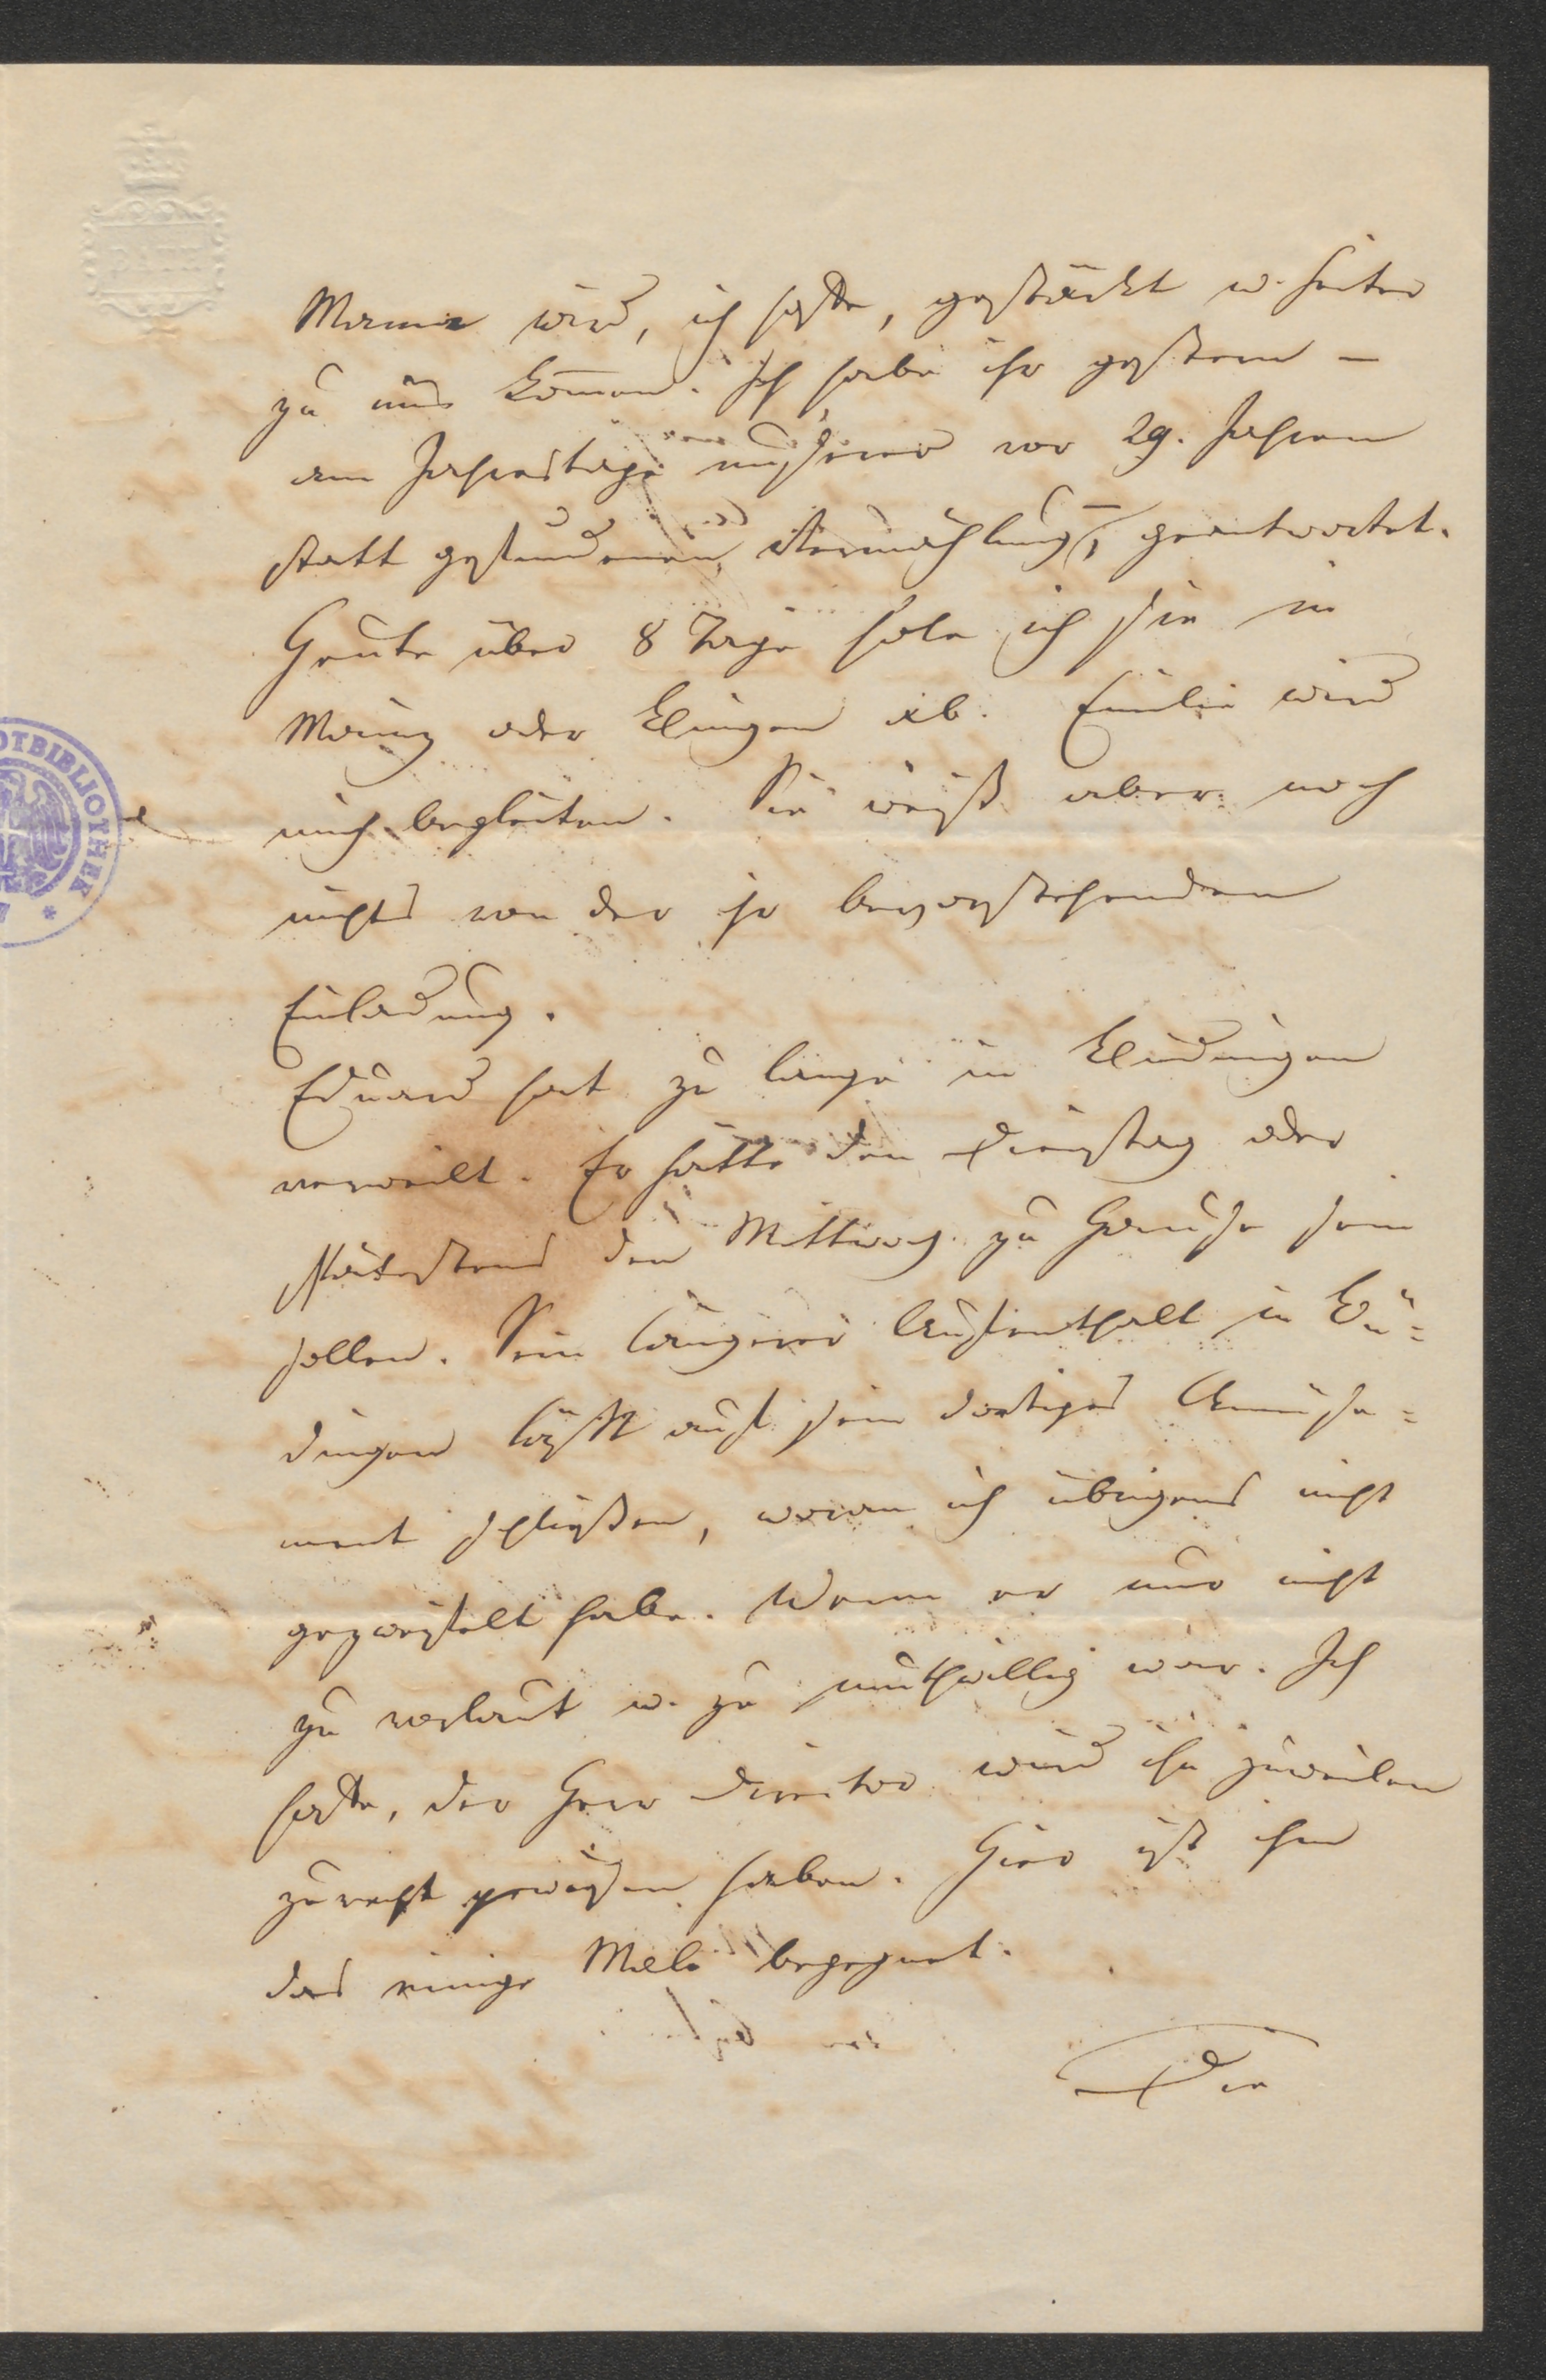 Mama wird, ich hoffe, gestärkt u. heiter
zu uns kom̄en. Ich habe ihr gestern –
am Jahrestage unserer vor 29. Jahren
statt gefundenen Vermählung, geantwortet.
Heute über 8 Tage hole ich sie in
Mainz oder Bingen ab. Emilie wird
mich begleiten. Sie weiß aber noch
nichts von der ihr bevorstehenden
Einladung.
Eduard hat zu lange in Büdingen
verweilt. Er hätte den Dienstag oder
spätestens den Mittwoch zu Hause sein
sollen. Sein längerer Aufenthalt in Bü=
dingen läßt auf sein dortiges Amüse=
ment schließen, woran ich übrigens nicht
gezweifelt habe. Wenn er nur nicht
zu vorlaut u. zu muthwillig war. Ich
hoffe, der Herr Director wird ihn zuweilen
zurecht gewiesen haben. Hier ist ihm
das einige Male begegnet.
Die
BATH
OTBIBLIOTHEK